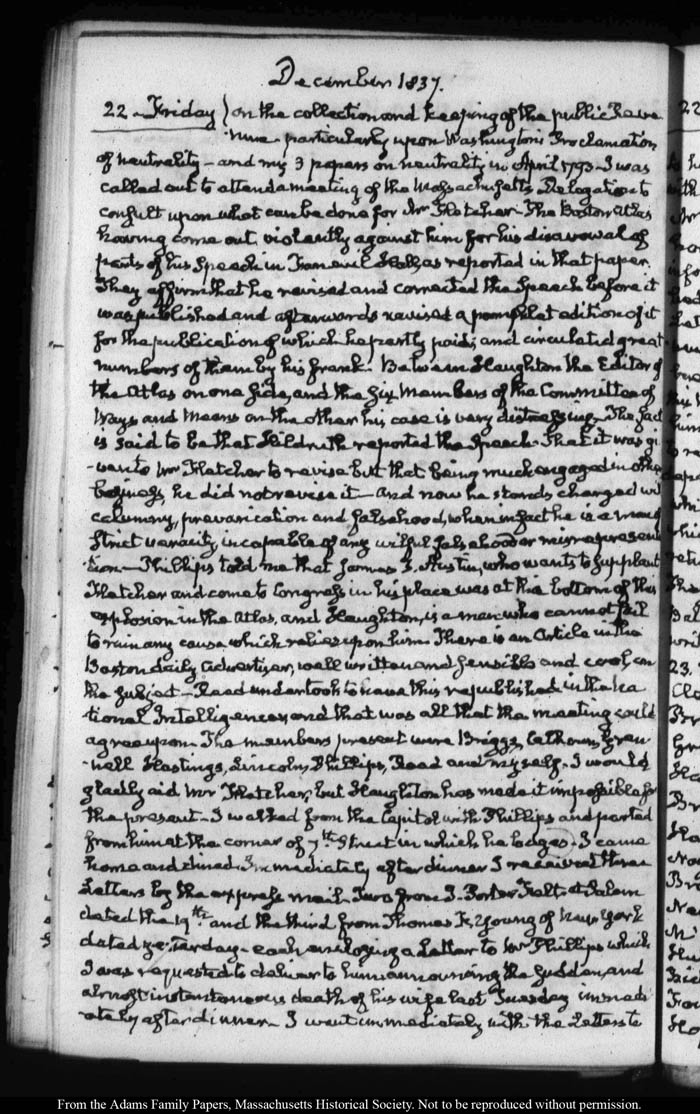 December 1837.
22. Friday) on the collection and keeping of the public Reve
nue - particularly upon Washington's Proclamation
of neutrality - and my 3 papers on neutrality in April 1793. I was
called out to attend a meeting of the Massachusetts Delegation to
consult upon what can be done for Mr Fletcher - The Boston Atlas
having come out violently against him for his disavowal of
parts of his Speech in Faneuil Hall, as reported in that paper.
They affirm that he revised and corrected the Speech before it
was published and afterwards revised a pamphlet edition of it
for the publication of which he partly paid, and circulated great
numbers of them by his frank. Between Haughton the Editor of
the Atlas on one side, and the six Members of the Committee of
Ways and Means on the other his case is very distressing. The fact
is said to be that Hildreth reported the Speech. That it was gi
-ven to Mr Fletcher to revise but that being much engaged in other
business, he did not revise it - and now he stands charged wi
calumny, prevarication and falsehood, when in fact he is a man of
strict veracity, incapable of any wilful falsehood or misrepresent
tion - Phillips told me that James T. Austin, who wants to supplant
Fletcher and come to Congress in his place was at the bottom of this
explosion in the Atlas, and Haughton, is a man who cannot fail
to ruin any cause which relies upon him. There is an Article in the
Boston daily advertiser, well written and sensible and cool, on
the subject - Reed undertook to have this republished in the Na
tional Intelligencer, and that was all that the meeting could
agree upon. The members present were Briggs, Calhoun, Gren
-nell Hastings, Lincoln, Phillips, Reed and myself. I would
gladly aid Mr Fletcher, but Haughton has made it impossible for
the present - I walked from the Capitol with Phillips and parted
from him at the corner of 7th Street in which he lodges. I came
home and dined. Immediately after dinner I received three
Letters by the express mail. Two from J. Porter Felt at Salem
dated the 19th and the third from Thomas K. Young of New York
dated yesterday - each enclosing a Letter to Mr Phillips which
I was requested to deliver to him announcing the sudden, and
almost instantaneous death of his wife last Tuesday immedi
ately after dinner - I went immediately with the Letters to
From the Adams Family Papers, Massachusetts Historical Society. Not to be reproduced without permission.